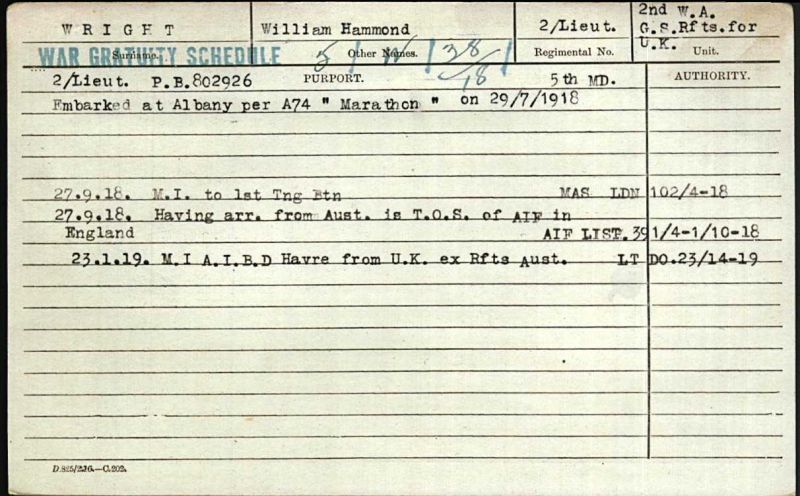 WRIGHT William Hammond 2/Lieut. 2nd W.A.
G.S.Rfts.for
U.K.
Surname. Other Names. Regimental No. Unit.
WAR GRATUITY SCHEDULE 5/W/38/18/
2/Lieut. P.B.802926 PURPORT. 5th MD. AUTHORITY.
Embarked at Albany per A74 " Marathon " on 29/7/1918
27.9.18. M.I. to 1st Tng Btn MAS LDN 102/4-18
27.9.18. Having arr. from Aust. is T.O.S. of AIF in
England AIF LIST.391/4-1/10-18
23.1.19. M.I A.I.B.D Havre from U.K. ex Rfts Aust. LT DO.23/14-19